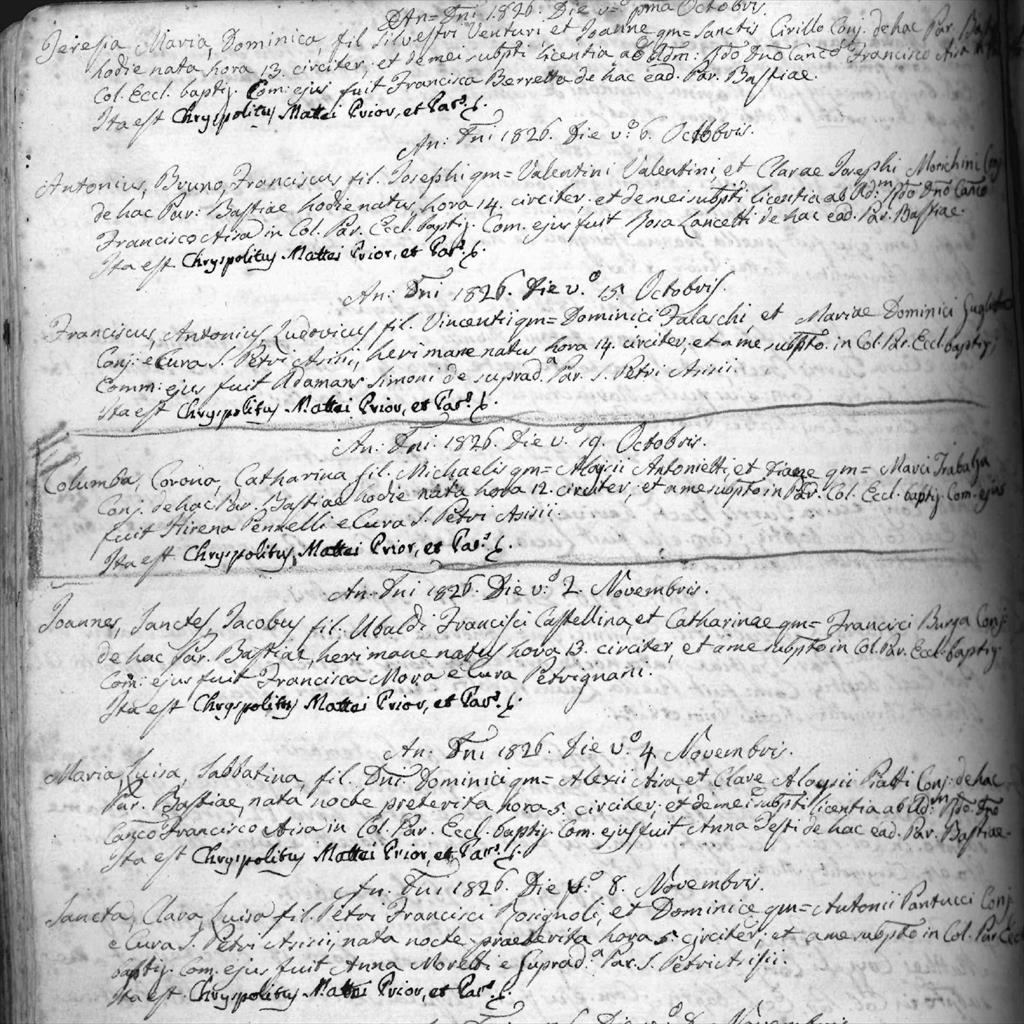 An= Dni 1826. Die v.° pma Octobris.
Teresia, Maria, Dominica, fil. Silvestri Venturi et Joanne qm= Sanctis Cirillo Conj. de hac Par.
hodie nata hora 13. circiter, et de mei subpti licentia ab Adm: Rdo Dno Canco Francisco Aisa
Col. Eccl. baptiz. Com. ejus fuit Francisca Berretta de hac ead. Par. Bastiae.
Ita est Chryspolitus Mattei Prior, et Par.s
An: Dni 1826. Die v.° 6. Octobris.
Antonius, Bruno, Franciscus fil. Josephi qm= Valentini Valentini, et Clarae Josephi Morichini Conj
de hac Par: Bastiae hodie natus hora 14. circiter, et de mei subpti licentia ab Adm: Rdo Dno Canco
Francisco Aisa in Col. Par. Eccl. baptiz. Com. ejus fuit Rosa Lancetti de hac ead. Par. Bastiae.
Ita est Chryspolitus Mattei Prior, et Par.s
An: Dni 1826. Die v.° 15. Octobris.
Franciscus, Antonius, Ludovicus fil. Vincenti qm= Dominici Falaschi, et Mariae Dominici
Conj: e Cura S. Petri Asisii, heri mane natus hora 14. circiter, et a me subpto. in Col. Par. Eccl. baptiz
Comm: ejus fuit Adamans Simoni de suprad.a Par. S. Petri Asisii.
Ita est Chryspolitus Mattei Prior, et Par.s
An: Dni: 1826. Die v.° 19. Octobris.
Columba, Corona, Catharina fil. Michaelis qm= Aloisii Antonietti, et Dianae qm= Marci Trabalza
Conj. de hac Par. Bastiae hodie nata hora 12. circiter, et a me subpto in Par. Col. Eccl. baptiz. Com. ejus
fuit Hirena Pennelli e Cura S. Petri Asisii
Ita est Chryspolitus Mattei Prior, et Par.s
An. Dni 1826. Die v.° 2. Novembris.
Joannes, Sanctes, Jacobus fil. Ubaldi Francisci Castellina, et Catharinae qm= Francisci Burga Conj.
de hac Par. Bastiae, heri mane natus hora 13. circiter, et a me subpto in Col. Par. Eccl. baptiz.
Com: ejus fuit Francisca Mora e Cura Petrignani.
Ita est Chryspolitus Mattei Prior, et Par.s
An: Dni 1826. Die v.° 4. Novembris.
Maria, Luisa, Sabbatina, fil. Dni Dominici qm= Alexii Aisa, et Clare Aloysii Piatti Conj: de hac
Par. Bastiae, nata nocte preterita hora 5. circiter, et de mei subpti licentia ab Adm Rdo Dno
Canco Francisco Aisa in Col. Par. Eccl. baptiz. Com. ejus fuit Anna Testi de hac ead. Par. Bastiae.
Ita est Chryspolitus Mattei Prior, et Par.s
An. Dni 1826. Die v.° 8. Novembris.
Sancta, Clara, Luisa fil. Petri Francisci Rosignoli, et Dominice qm= Antonii Pantucci Conj.
e Cura S. Petri Asisii, nata nocte praeterita hora 5. circiter, et a me subpto in Col. Par. Eccl
baptiz. Com. ejus fuit Anna Moretti e suprad.a Par. S. Petri Asisii.
Ita est Chryspolitus Mattei Prior, et Par.s